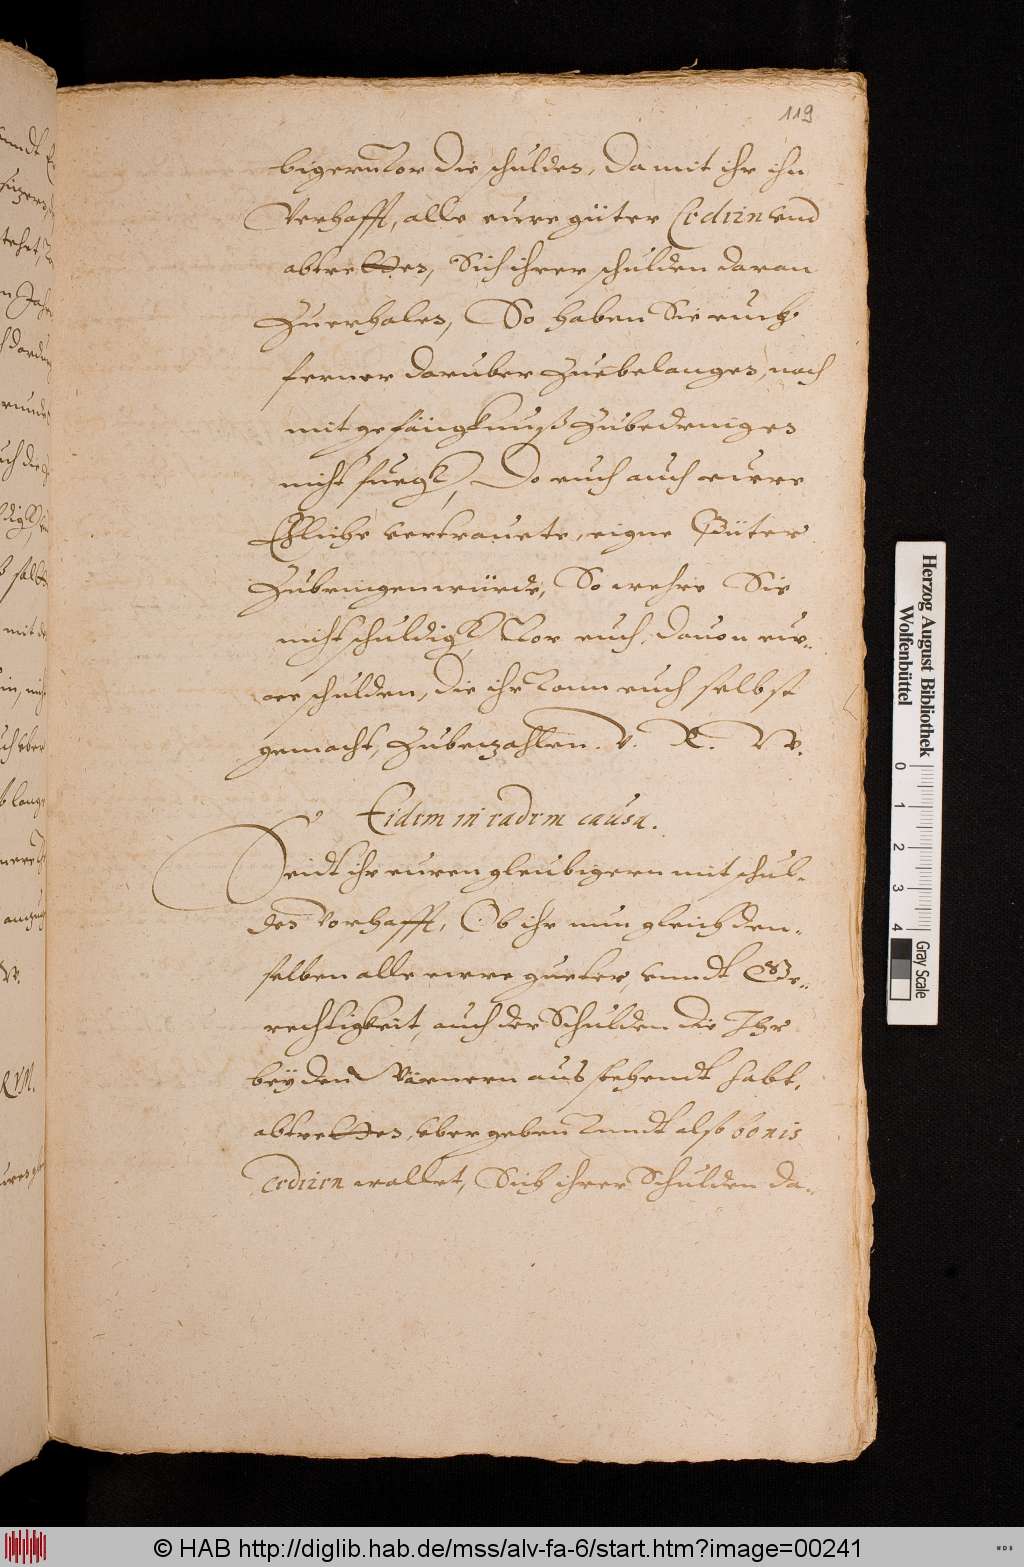 119
bigern vor die schulden, damit ihr ihn
Verhafft, alle eure güter Cedirn vnd
abtretten, Sich ihrer schulden daran
Zuerhalen, So haben Sie euch
ferner daruber Zuebelangen, noch
mit gefängknuß Zubedrengen
nicht fueg, Do euch auch euere
Ehliche vertrauete, eigne Güter
Zubringen würde, So wehre Sie
nicht schuldig vor euch, dauon eu=
ere schulden, die ihr dann euch selbst
gemacht, Zubezahlen. V. R. W.
Eidem in eadem causa.
Seidt ihr euren gleubigern mit schul=
den Vorhafft, Ob ihr nun gleich den=
selben alle euere gueter, vnndt Ge=
rechtigkeit, auch der Schulden die Ihr
bey den aus stehendt habt,
abtretten, vbergeben vnndt also bonis
cediren wollet, Sich ihrer Schulden da=
Herzog August Bibliothek
Wolfenbüttel
0 1 2 3 4
Gray Scale
© HAB http://diglib.hab.de/mss/alv-fa-6/start.htm?image=00241